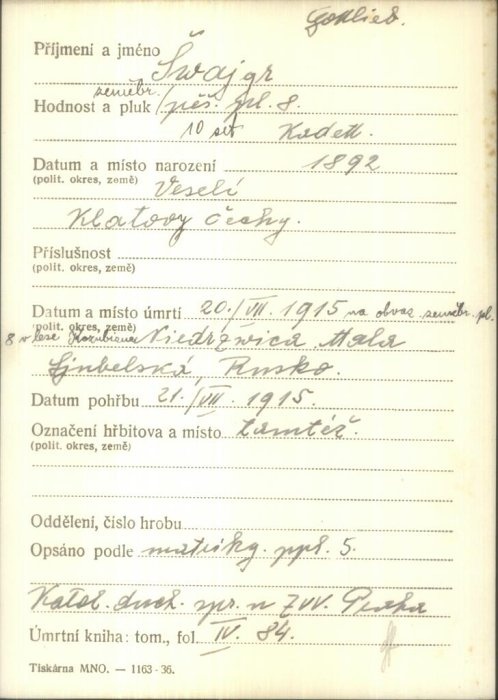 Gottlieb.
Příjmení a jméno Švajgr
zeměbr.
Hodnost a pluk pěš. pl. 8.
10 set Kadett.
Datum a místo narození 1892
(polit. okres, země) Veselí
Klatovy Čechy.
Příslušnost
(polit. okres, země)
Datum a místo úmrtí 20./VII. 1915 na obvaz. zeměbr. pl.
(polit. okres, země)
8 v lese Niedrzwica Mala
Ljubelská, Rusko.
Datum pohřbu 21./VII. 1915.
Označení hřbitova a místo tamtéž.
(polit. okres, země)
Oddělení, číslo hrobu
Opsáno podle matriky. ppl. 5.
Katol. duch. spr. n ZVV. Praha
Úmrtní kniha: tom., fol. IV. 84.
Tiskárna MNO. — 1163-36.